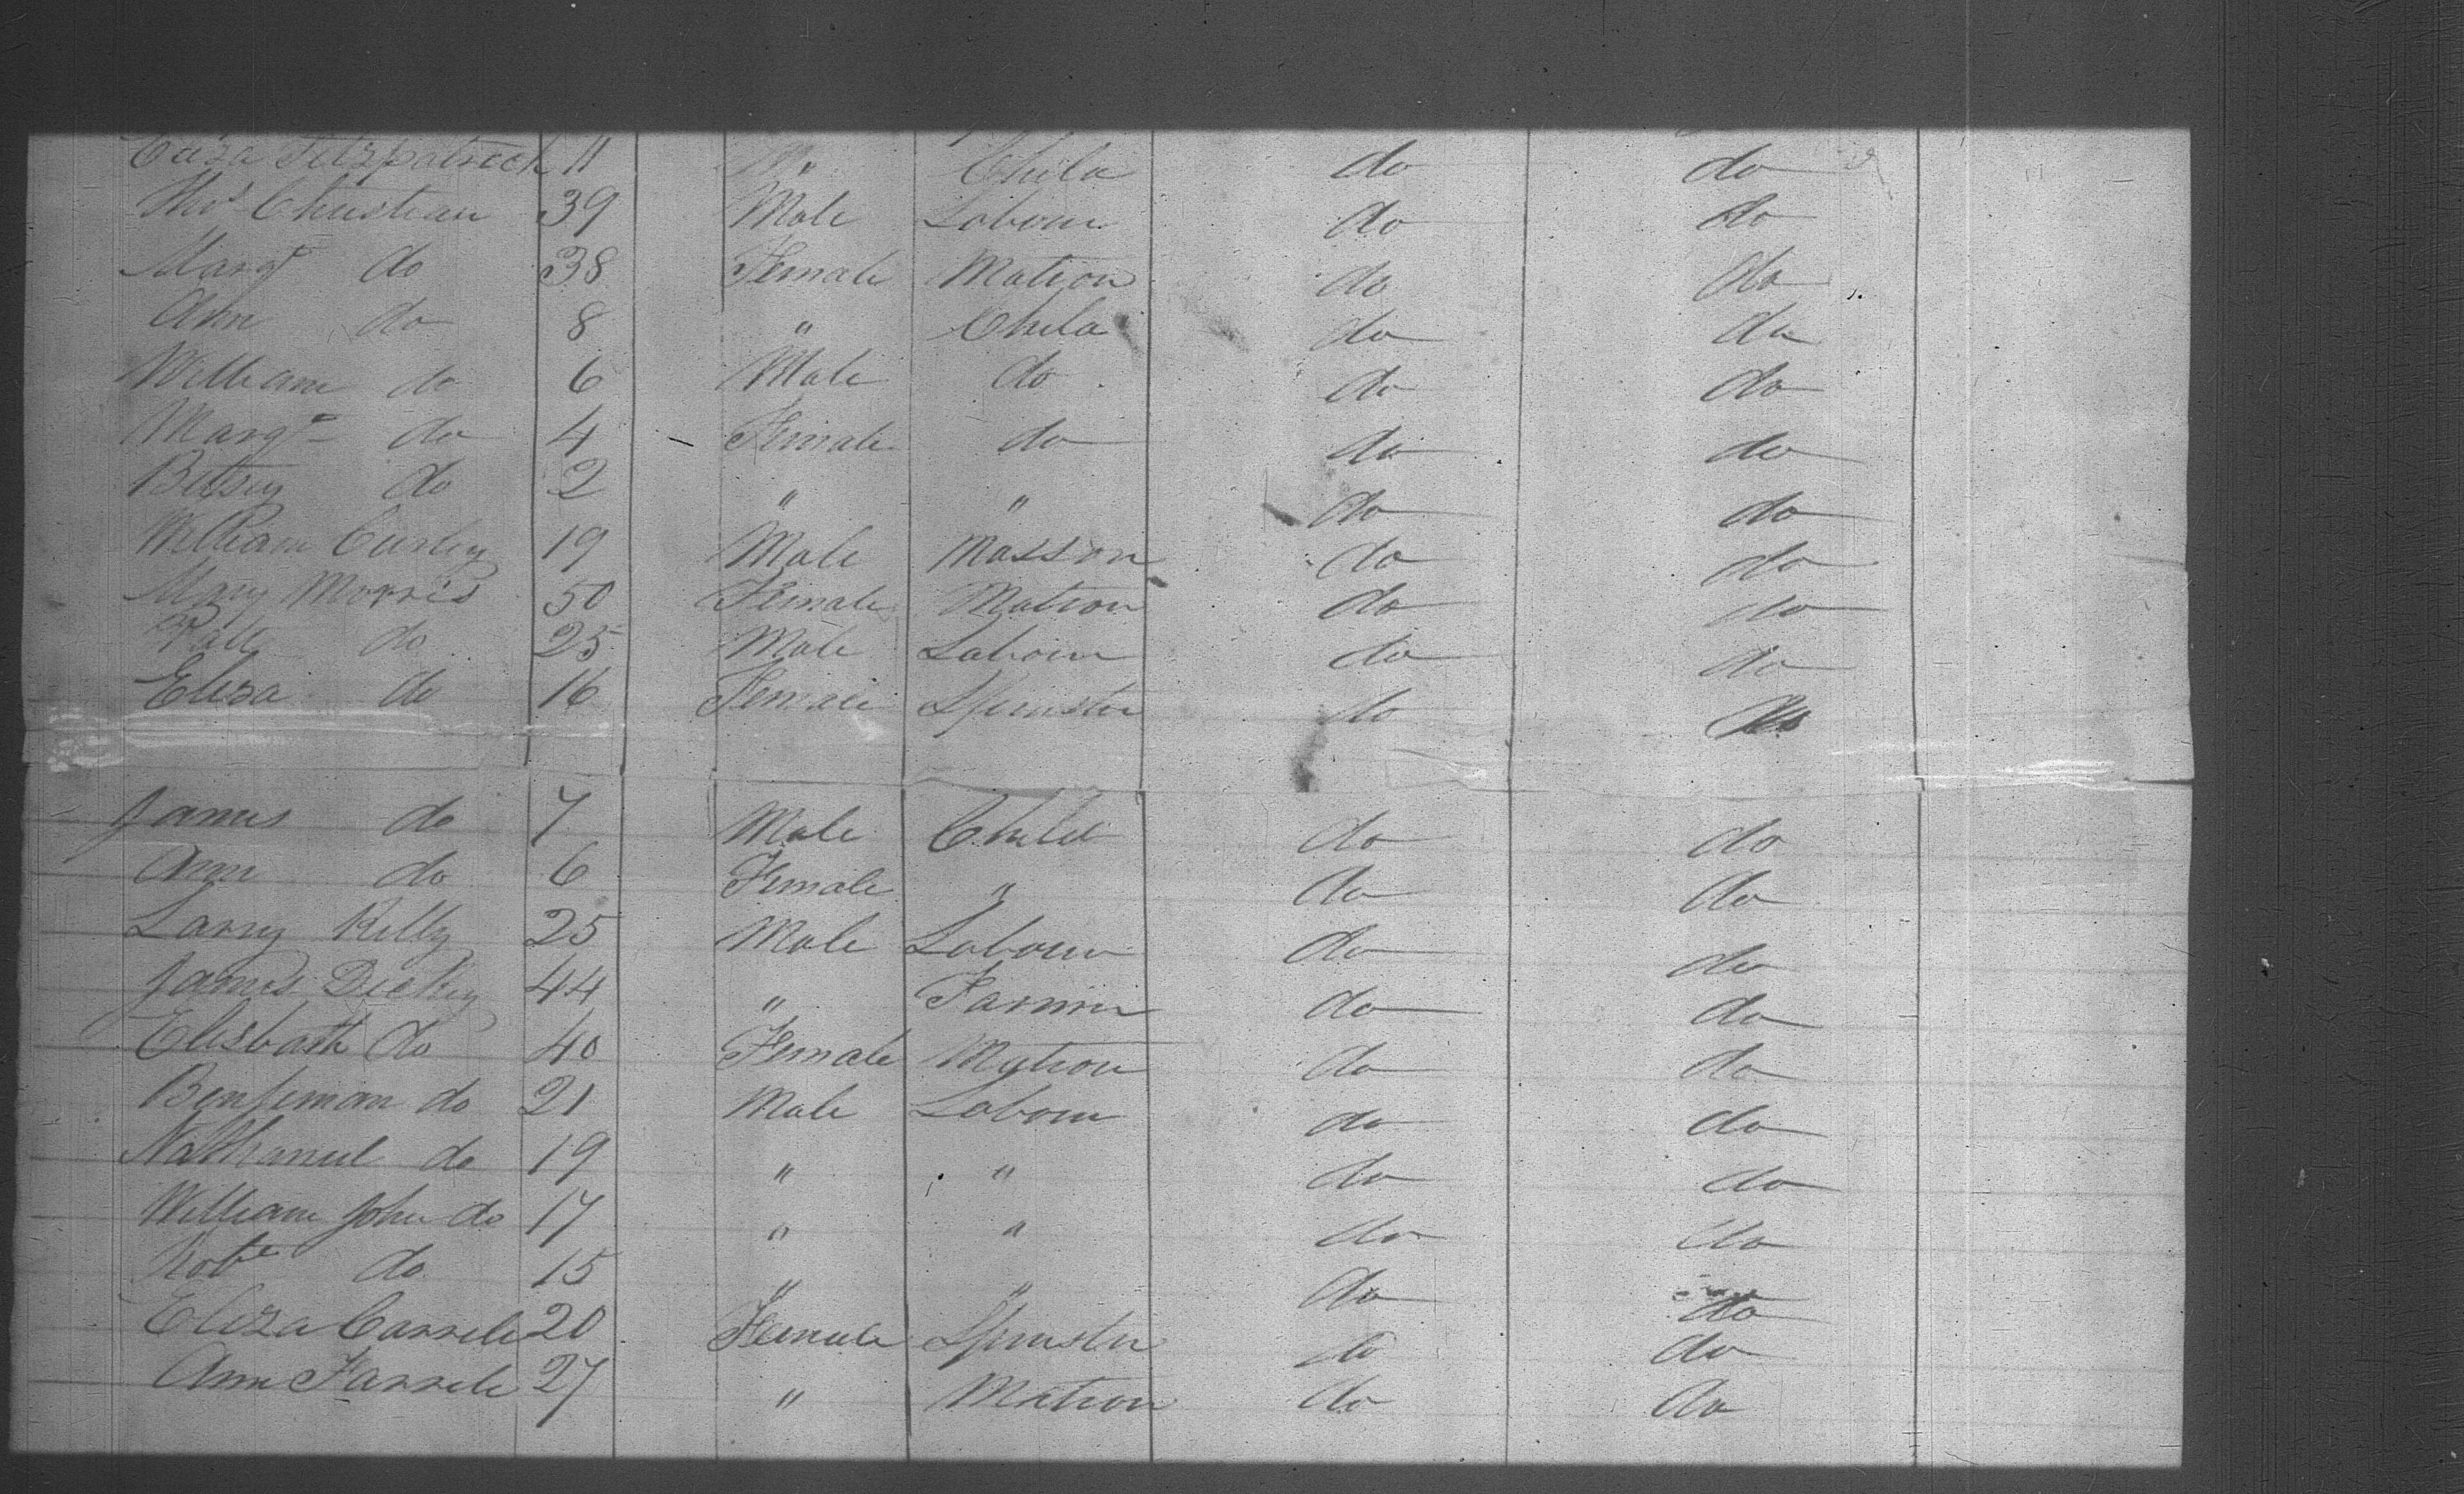 Eliza Fitzpatrick 11 " Child do do
Thos Christian 39 Male Labour do do
Margt do 38 Female Matron do do
Ann do 8 " Child do do
William do 6 Male do do do
Margt do 4 Female do do do
Betsey do 2 " " do do
William Curley 19 Male Masson do do
Mary Morris 50 Female Matron do do
Patt do 25 Male Labour do do
Eliza do 16 Female Spinster do do
James do 7 Male Child do do
Ann do 6 Female " do do
Larry Killy 25 Male Labour do do
James Dickey 44 " Farmer do do
Elisbath do 40 Female Matron do do
Benjeman do 21 Male Labour do do
Nathaniel do 19 " " do do
William John do 17 " " do do
Robt do 15 " " do do
Eliza Carrele 20 Female Spinster do do
Ann Farrele 27 " Matron do do